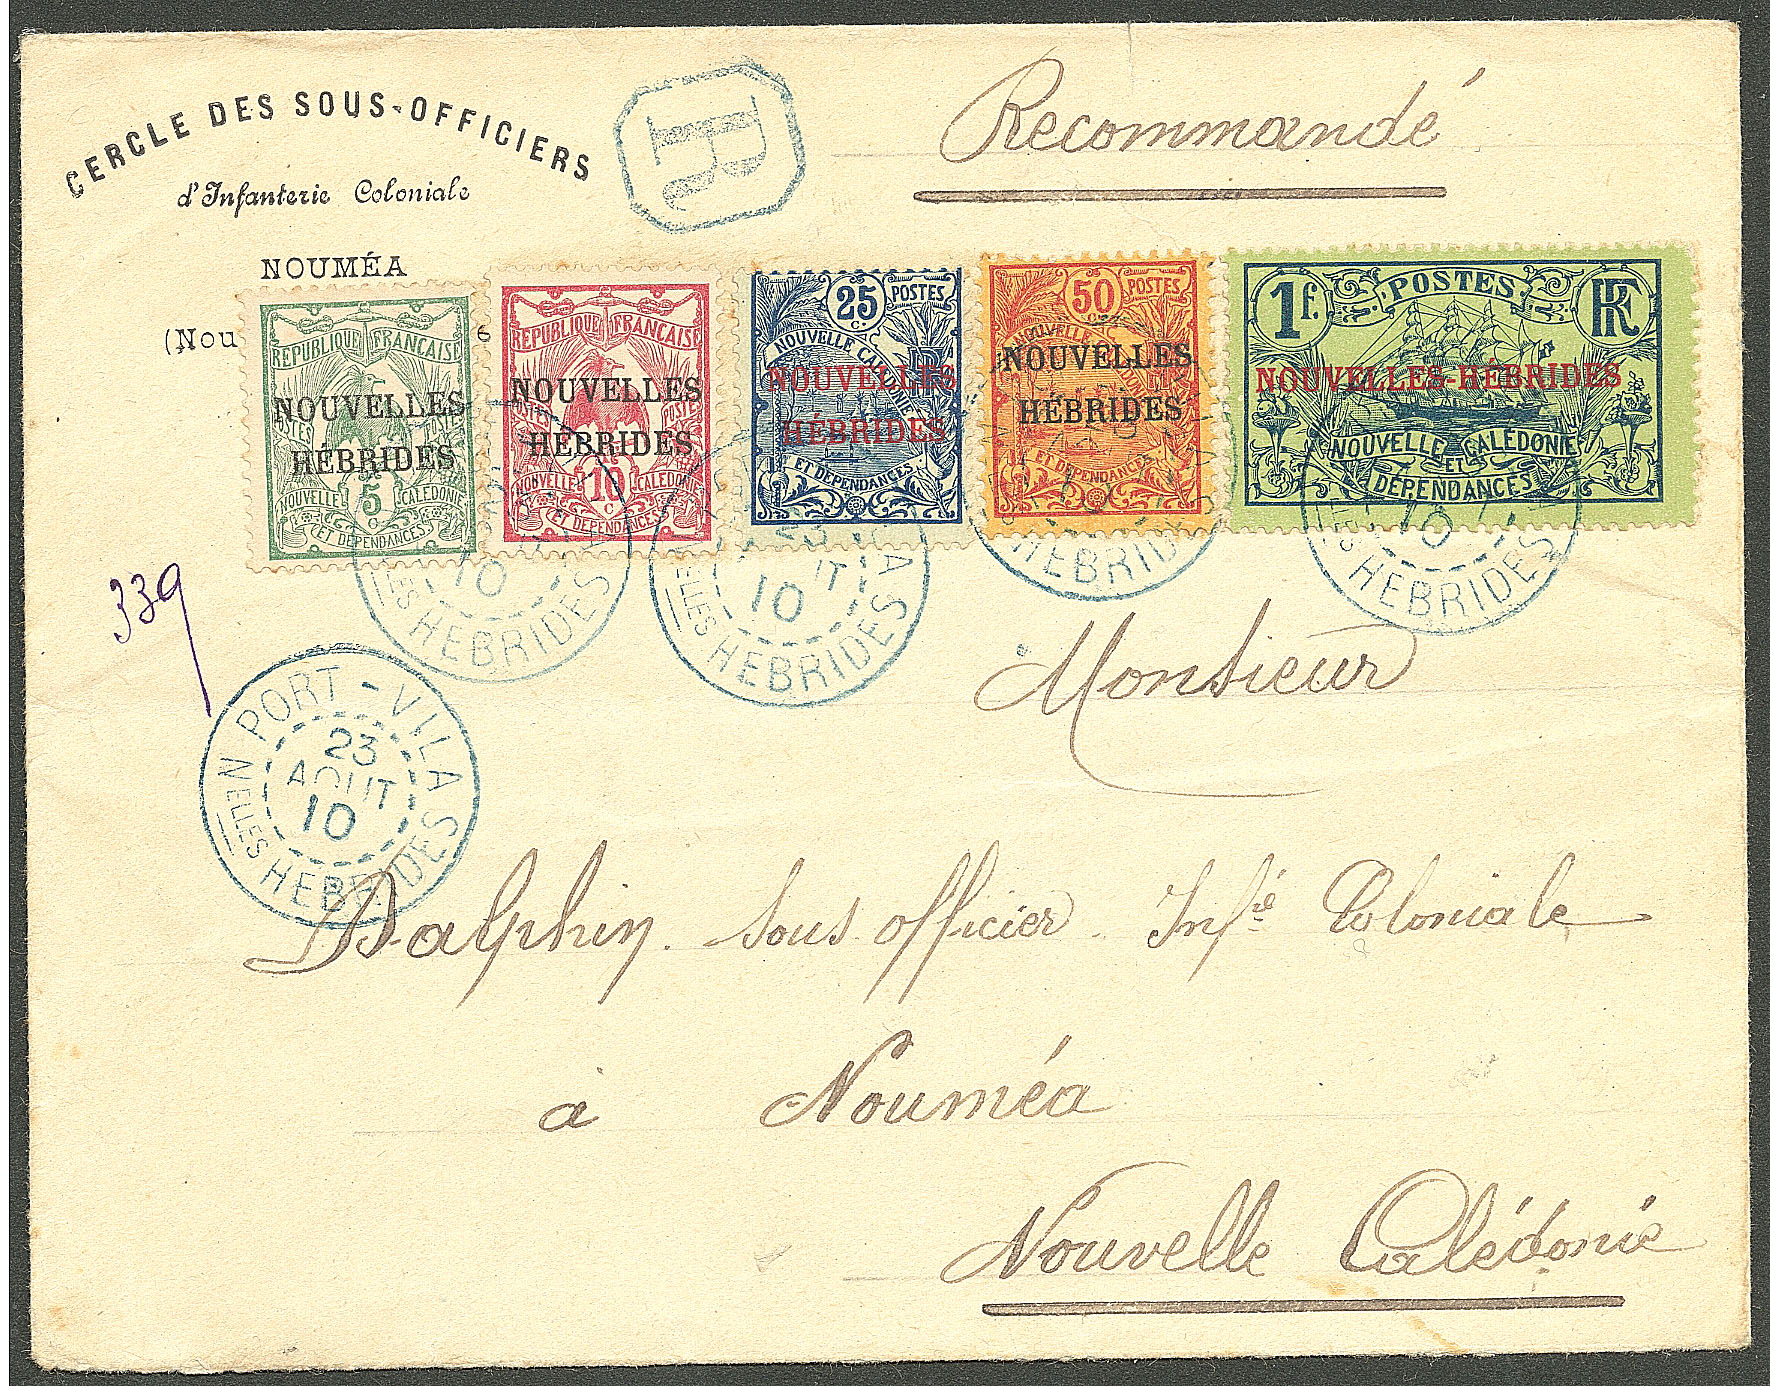 CERCLE DES SOUS-OFFICIERS
d'Infanterie Coloniale
NOUMÉA
(Nou
e
R
Recommandé
RÉPUBLIQUE FRANÇAISE
NOUVELLES
HÉBRIDES
POSTES POSTES
5
c
NOUVELLE CALÉDONIE
ET DÉPENDANCES
RÉPUBLIQUE FRANÇAISE
NOUVELLES
HÉBRIDES
POSTES
10
c
NOUVELLE CALÉDONIE
ET DÉPENDANCES
25
c.
POSTES
NOUVELLE CALÉDONIE
RF
NOUVELLES
HÉBRIDES
ET DÉPENDANCES
50
c.
POSTES
NOUVELLE CALÉDONIE
NOUVELLES
HÉBRIDES
ET DÉPENDANCES
1f.
POSTES
RF
NOUVELLES-HÉBRIDES
NOUVELLE CALÉDONIE
ET
DÉPENDANCES
10
ELLES HEBRIDES
23
10
ELLES HEBRIDES
HEBRIDES
10
HEBRIDES
339
PORT-VILA
23
AOUT
10
NELLES HEBRIDES
Monsieur
Dalphin. Sous officier. Infie Coloniale
à Nouméa
Nouvelle Calédonie